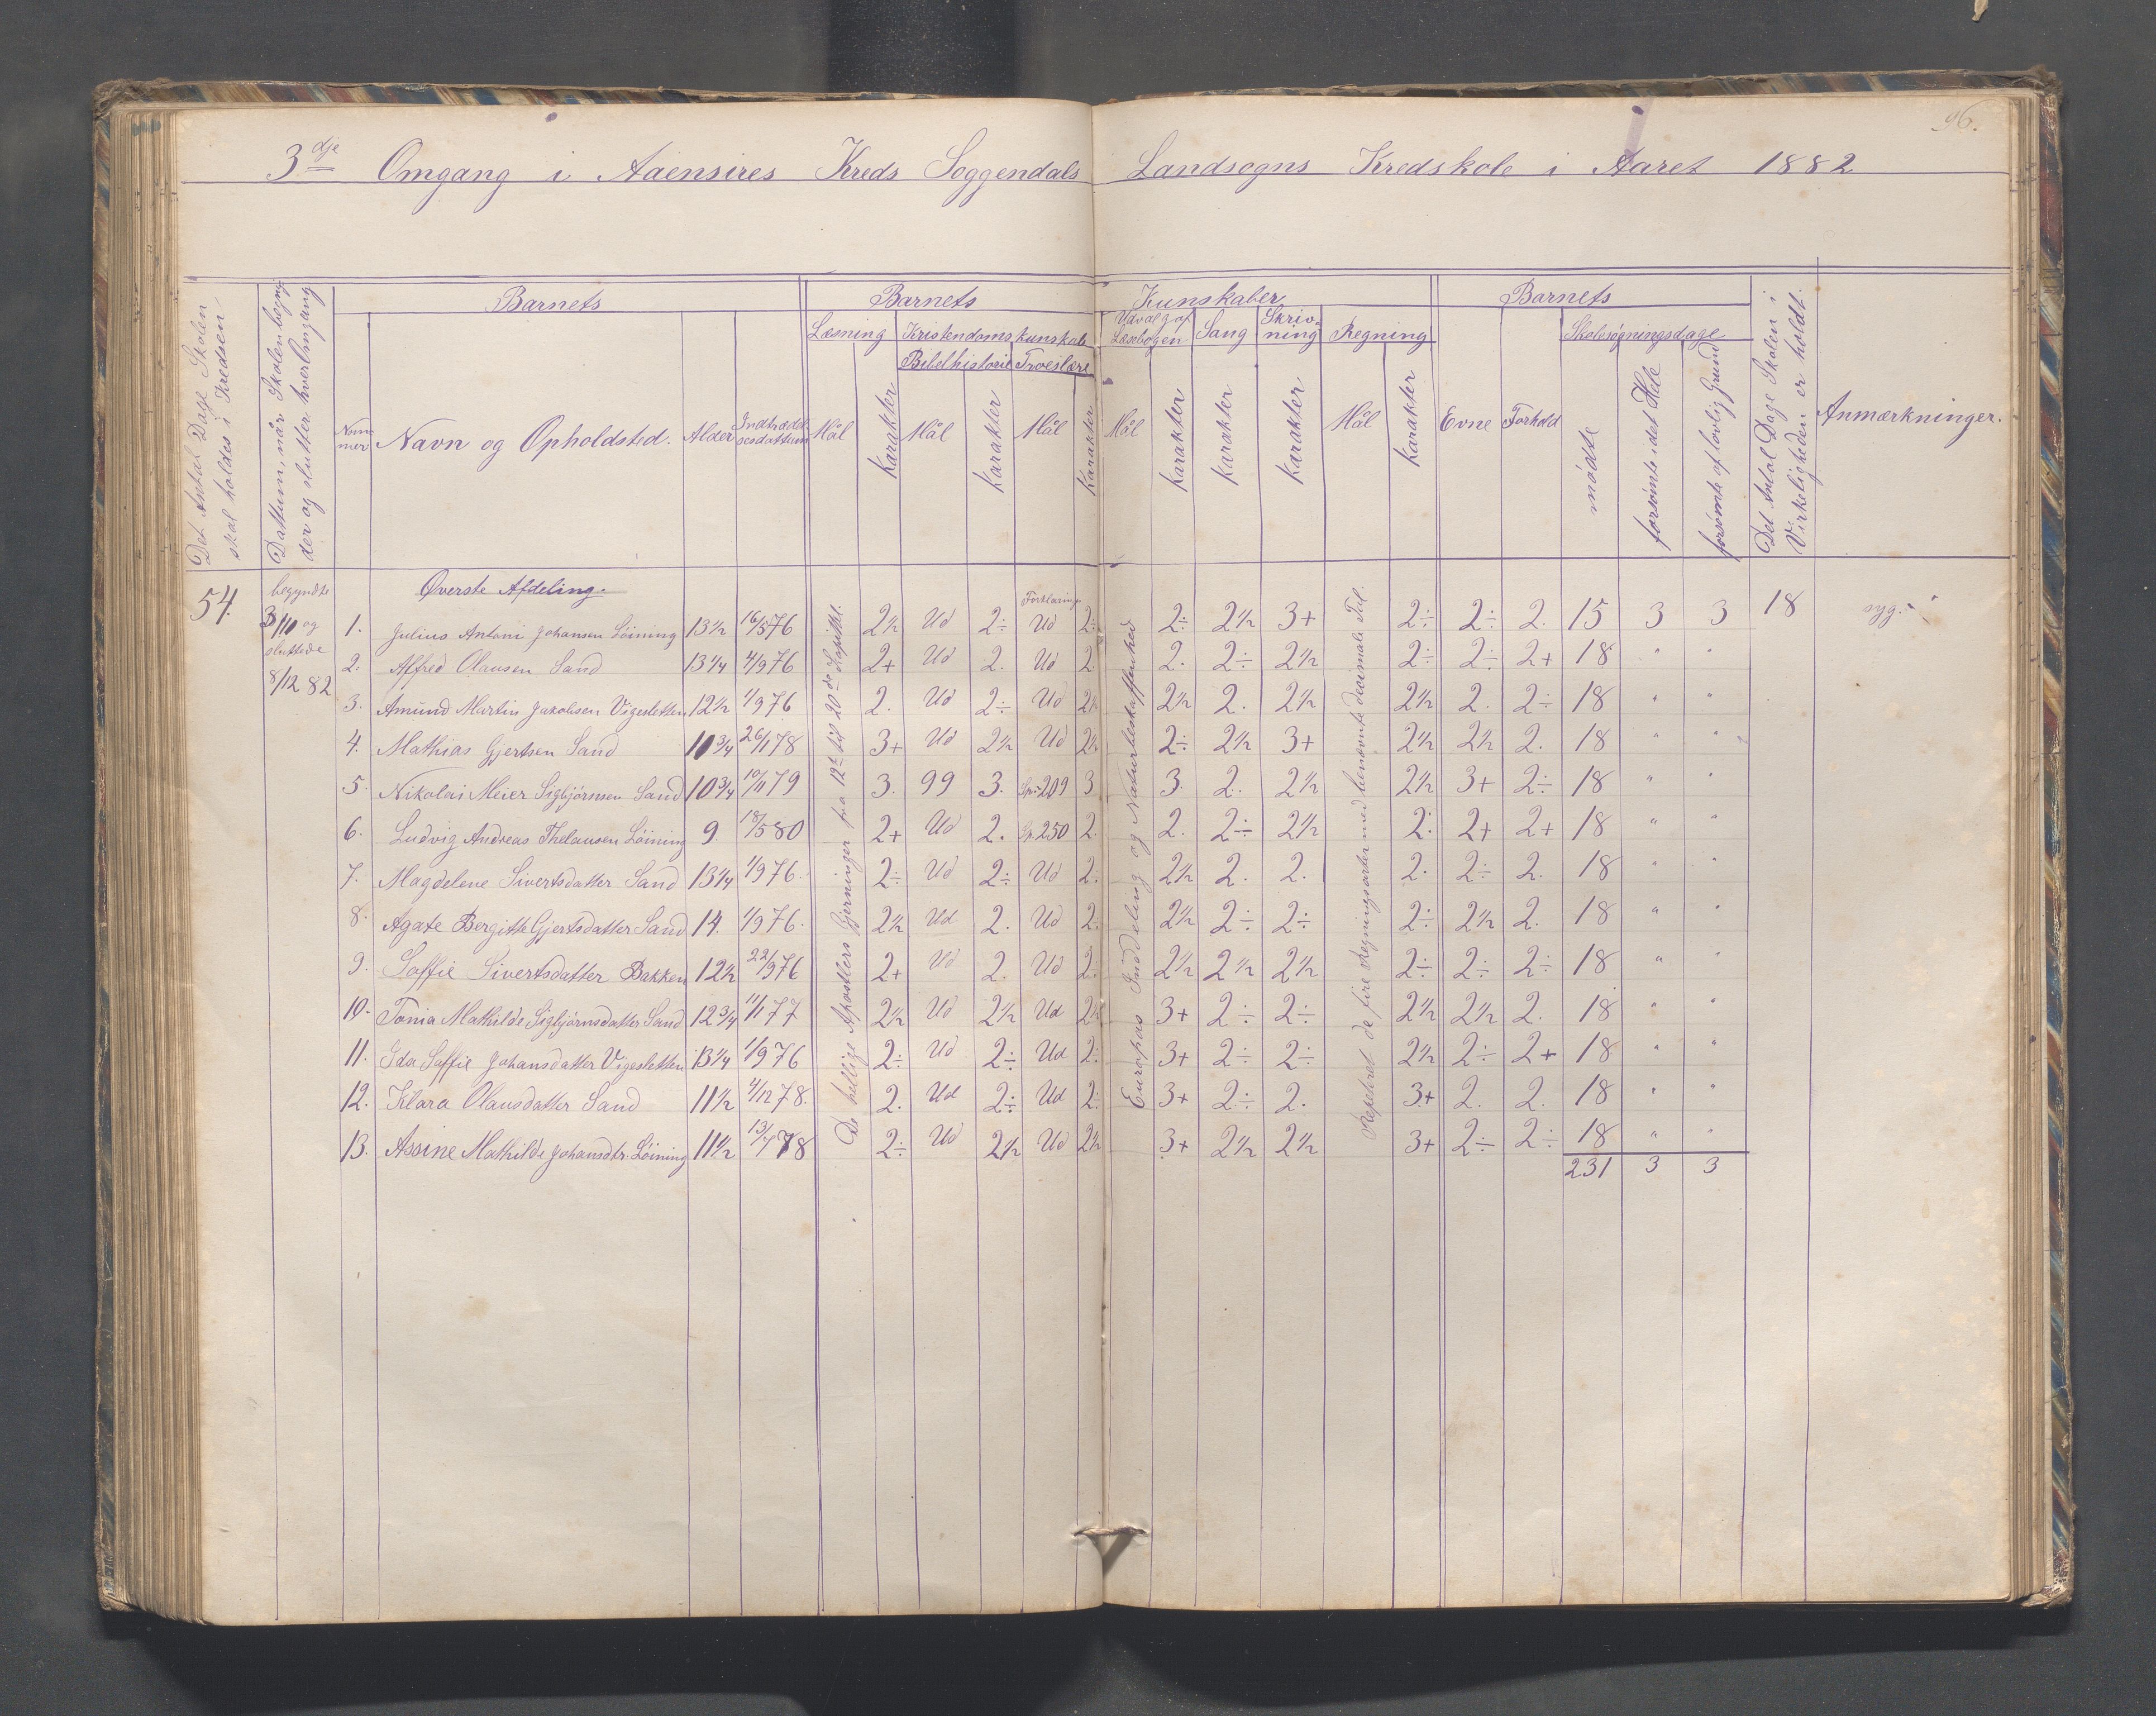 96.
3dje Omgang i Aaensires Kreds Soggendals Landsogns Kredskole i Aaret 1882
Det Antal Dage Skolen skal holdes i Kredsen
Dattum, når Skolen begynder og slutter hver Omgang
Barnets
Nommer
Navn og Opholdsted.
Alder
Indtrædelsesdattum
Barnets Kunskaber
Læsning
Mål
Karakter
Kristendomskunskab
Bibelhistorie
Mål
Karakter
Troeslære
Mål
Karakter
Udvalg af Læsebogen
Mål
Karakter
Sang
Karakter
Skrivning
Karakter
Regning
Mål
Karakter
Barnets
Evne
Forhold
Skolesøgningsdage
mødte
forsømte i det Hele
forsømte af lovlig Grund
Det Antal Dage Skolen i Virkeligheden er holdt.
Anmærkninger.
54.
begyndte 3/10 og sluttede 8/12 82
Øverste Afdeling.
De hellige Apostlers Gjerninger fra 12te til 20de Kapittel.
Europas Inddeling og Naturbeskaffenhed
Repeteret de fire Regningsarter med benævnte decimale Tal.
Forklaring
1. Julius Antoni Johansen Löining 13½ 16/5 76 2½ Ud 2÷ Ud 2÷ 2÷ 2½ 3+ 2÷ 2÷ 2. 15 3 3 18 syg.
2. Alfred Olausen Sand 13¼ 4/9 76 2+ Ud 2. Ud 2. 2. 2÷ 2½ 2÷ 2÷ 2+ 18 " "
3. Amund Martin Jakobsen Vigesletten 12½ 1/9 76 2. Ud 2÷ Ud 2½ 2½ 2. 2½ 2½ 2. 2÷ 18 " "
4. Mathias Gjertsen Sand 10¾ 26/1 78 3+ Ud 2½ Ud 2½ 2÷ 2½ 3+ 2½ 2½ 2. 18 " "
5. Nikolai Meier Sigbjörnsen Sand 10¾ 10/11 79 3. 99 3. Sp. 209 3 3. 2. 2½ 2½ 3+ 2÷ 18 " "
6. Ludvig Andreas Thelausen Löining 9. 18/5 80 2+ Ud 2. Sp. 250 2. 2. 2÷ 2½ 2. 2+ 2+ 18 " "
7. Magdelene Sivertsdatter Sand 13¼ 1/9 76. 2÷ Ud 2÷ Ud 2. 2½ 2. 2. 2. 2÷ 2. 18 " "
8. Agate Bergitte Gjertsdatter Sand 14. 1/9 76. 2½ Ud 2. Ud 2÷ 2½ 2÷ 2÷ 2÷ 2½ 2. 18 " "
9. Saffie Sivertsdatter Bakken 12½ 22/9 76 2+ Ud 2. Ud 2÷ 2½ 2½ 2½ 2÷ 2÷ 2÷ 18 " "
10. Tonia Mathilde Sigbjörnsdatter Sand 12¾ 1/1 77 2½ Ud 2½ Ud 2½ 3+ 2÷ 2÷ 2½ 2½ 2. 18 " "
11. Ida Saffie Johansdatter Vigesletten 13¼ 1/9 76 2÷ Ud 2÷ Ud 2÷ 3+ 2÷ 2÷ 2½ 2÷ 2+ 18 " "
12. Klara Olausdatter Sand 11½ 4/12 78. 2. Ud 2÷ Ud 2÷ 3+ 2÷ 2. 3+ 2. 2. 18 " "
13. Assine Mathilde Johansdtr. Löining 11½ 13/7 78 2÷ Ud 2½ Ud 2½ 3+ 2½ 2½ 3+ 2÷ 2÷ 18 " "
231 3 3